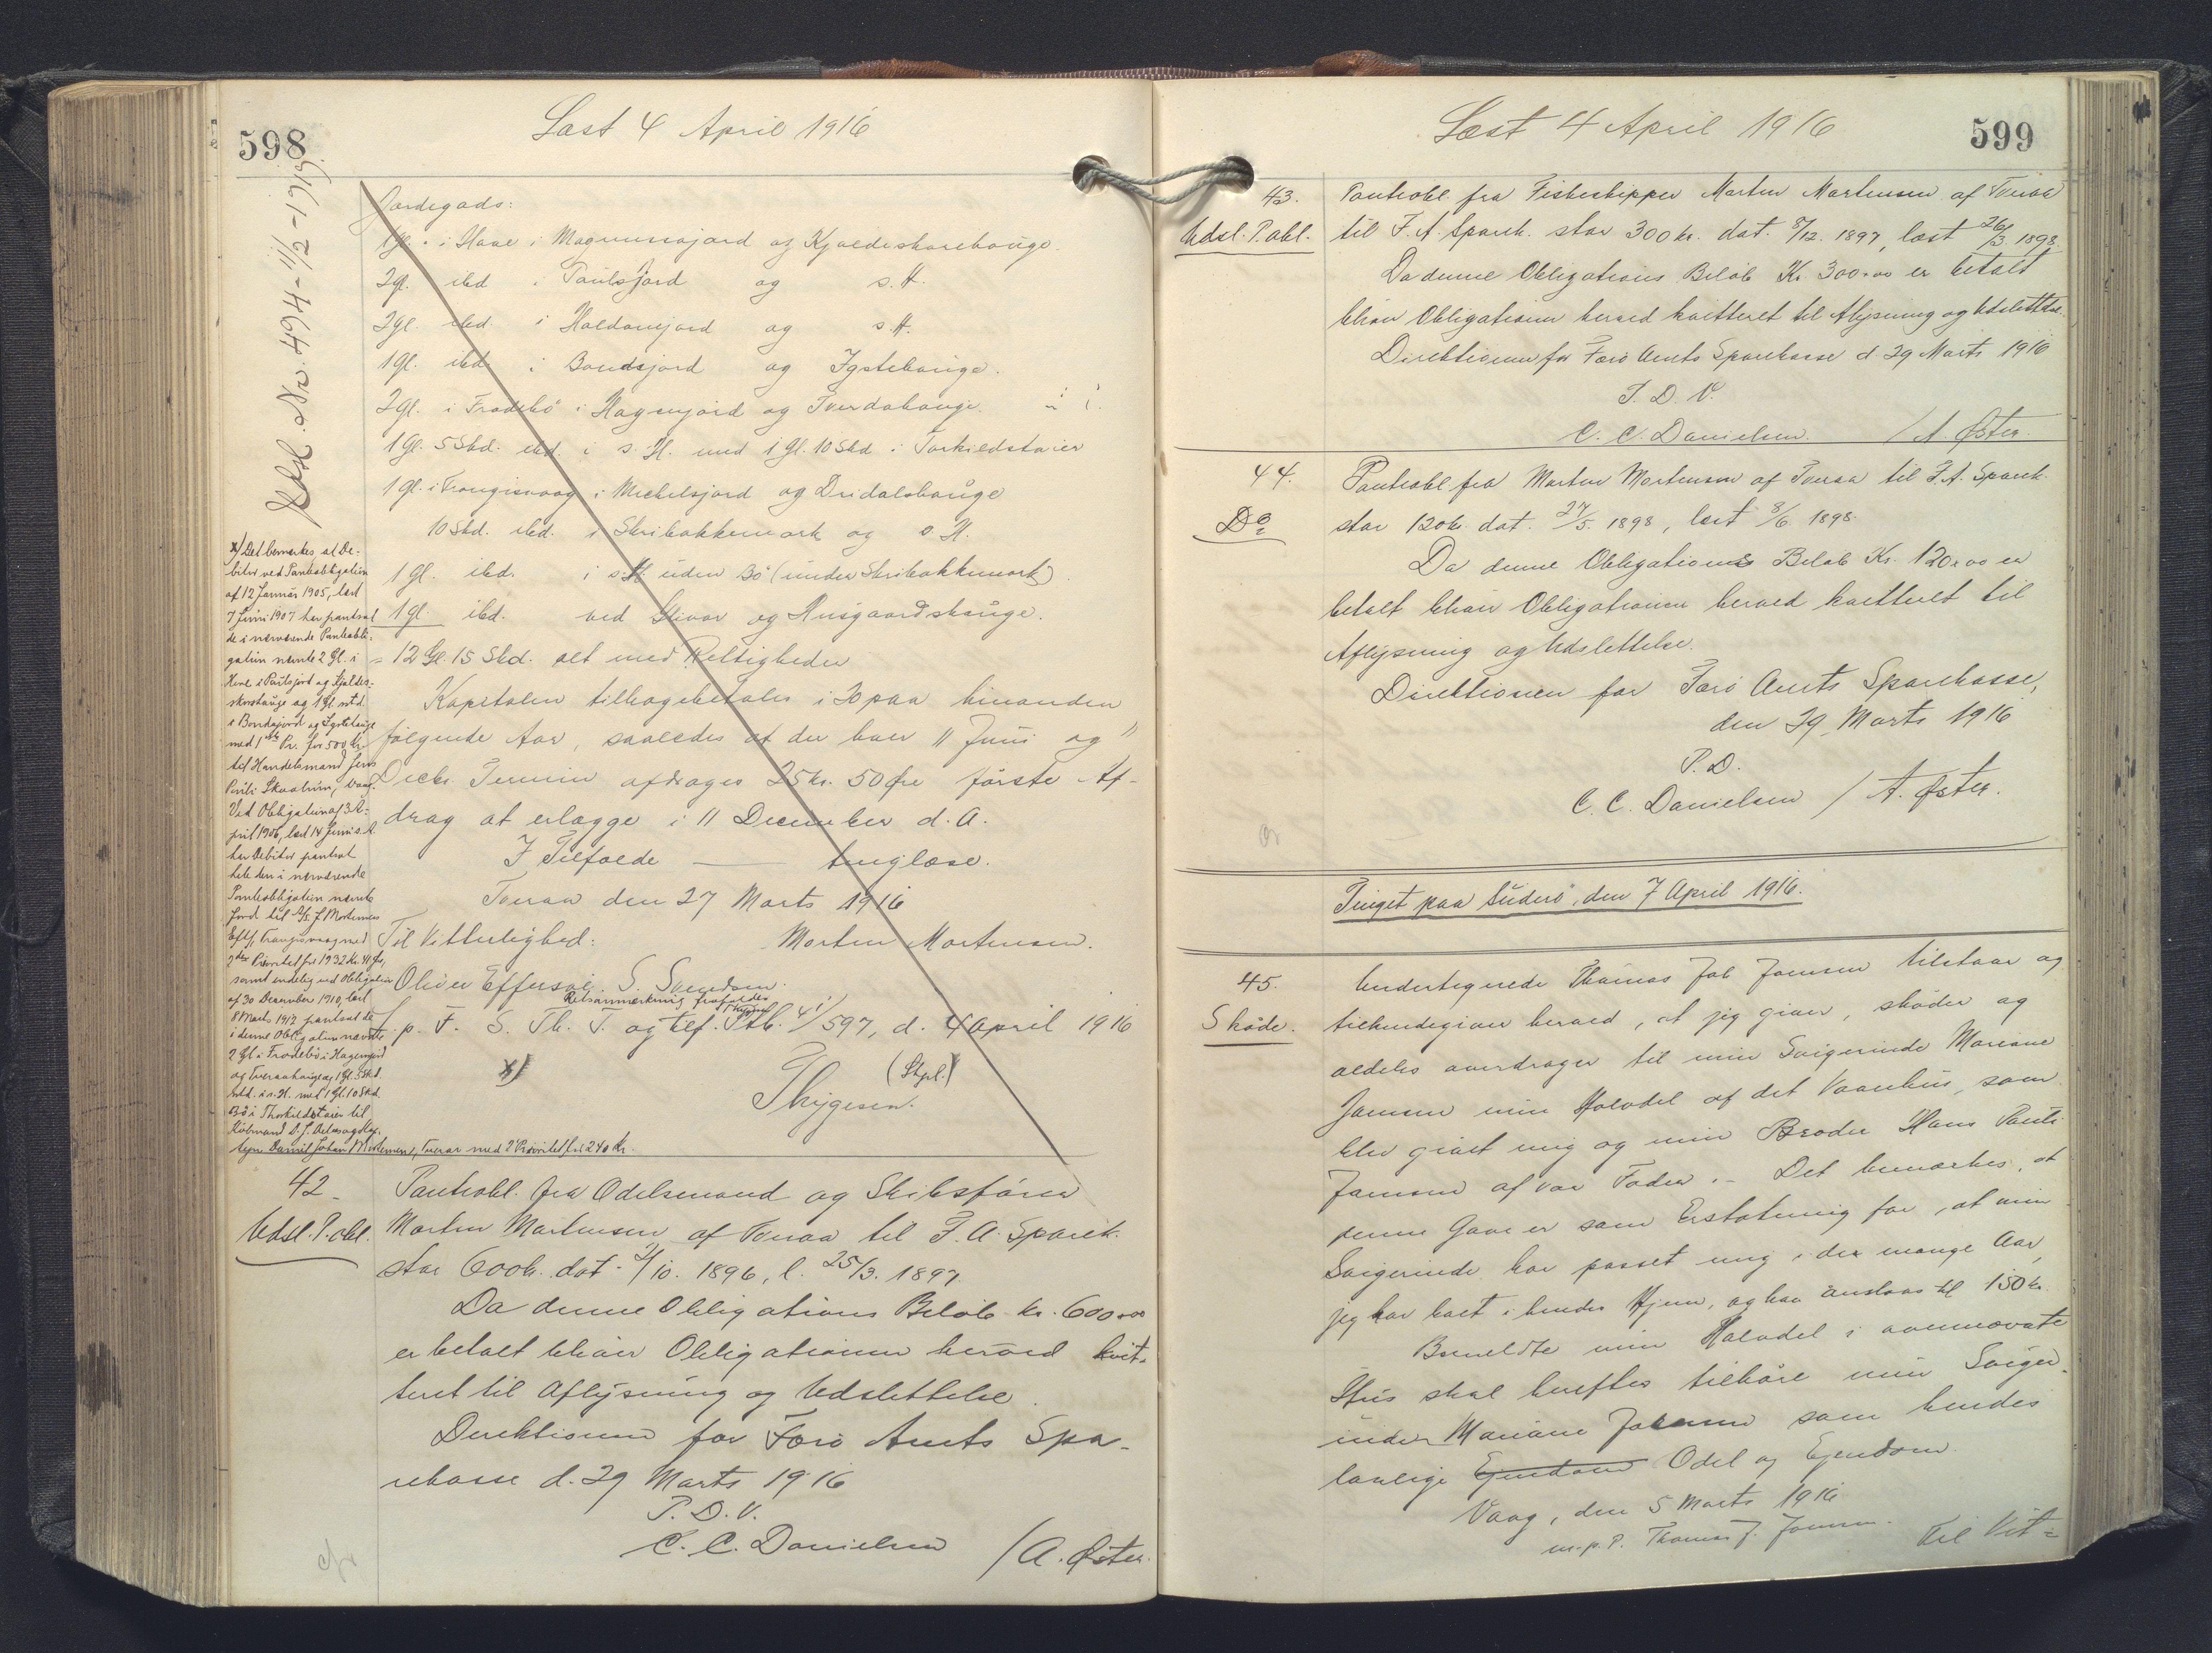 598
Læst 4 April 1916
Udsl. No. 494 - 11/2 - 19
Jordegods:
1 gl. i Hove i Magnussajord og Kjældeskorehauge.
2 gl. ibd i Paulsjord og s. H.
2 gl. ibd. i Haldansjord og s. H.
1 gl. ibd i Bondajord og Igstehauge.
2 gl. i Frodebö i Hagenjord og Tverdahauge.
1 Gl. 5 Skd. ibd. i s. H. med 1 Gl. 10 Skd i Torkildstaier
1 gl. i Trongisvaag i Michelsjord og Dridalshauge
10 Skd. ibd. i Skribakkemark og s. H.
1 gl. ibd. i s. H. uden Bö (under Skribakkemark).
1 gl ibd. ved Glivar og Husgaardshauge.
= 12 Gl. 15 Skd. alt med Rettigheder
Kapitalen tilbagebetales i 20 paa hinanden
følgende Aar, saaledes at der hver 11 Juni og 11
Decbr. Termin afdrages 25 kr. 50 Øre første Af-
drag at erlægge i 11 December d. A.
I Tilfælde — tinglæse.
Tveraa den 27 Marts 1916
Til Vitterlighed: Morten Mortensen.
Oliver Effersöe. S. Svendsen.
Retsanmærkning frafaldes
Thygesen
p. F. S. Th. T. og tilf. Ptb. 41/597, d. 4 April 1916
x) (Stpl.)
Thygesen.
x) Det bemærkes, at De-
bitor ved Panteobligation
af 12 Januar 1905, læst
7 Juni 1907 har pantsat
de i nærværende Panteobli-
gation nævnte 2 Gl. i
Hove i Paulsjord og Kjældes-
skorehauge og 1 Gl. sstd.
i Bondajord og Igstehauge
med 1ste Pr. for 500 Kr.
til Handelsmand Jens
Pauli Skaalum, Vaag.
Ved Obligation af 3 A-
pril 1906, læst 14 Juni s. A.
har Debitor pantsat
hele den i nærværende
Panteobligation nævnte
Jord til A/S J. Mortensens
Eftf., Trangisvaag med
2den Prioritet for 1932 Kr. 41 Øre,
samt endelig ved Obligation
af 30 December 1910, læst
8 Marts 1912 pantsat de
i denne Obligation nævnte
2 Gl i Frodebö i Hagenjord
og Tveraahauge og 1 Gl. 5 Skd.
sstd. i s. H. med 1 Gl. 10 Skd.
Bö i Thorkildstaier til
Købmand D. J.
Daniel Johan Mortensen, Tveraa med 2 Prioritet for 240 Kr.
42. Panteobl. fra Odelsmand og Skibsförer
Udsl. P. obl. Morten Mortensen af Tveraa til F. A. Sparek.
stor 600 kr. dat. 21/10. 1896, l. 25/3. 1897.
Da denne Obligations Beløb kr. 600.00
er betalt bliver Obligationen herved kvit-
teret til Aflysning og Udslettelse.
Direktionen for Færö Amts Spa-
rekasse d. 29 Marts 1916
P. D. V.
C. C. Danielsen / A. Øster.
Læst 4 April 1916
599
43. Panteobl. fra Fiskeskipper Morten Mortensen af Tveraa
Udsl. P. obl. til F. A. Sparek. stor 300 kr. dat. 8/12. 1897, læst 26/3. 1898.
Da denne Obligations Beløb Kr 300.00 er betalt
bliver Obligationen herved kvitteret til Aflysning og Udslettelse.
Direktionen for Færö Amts Sparekasse d. 29 Marts 1916
P. D. V.
C. C. Danielsen. / A. Øster
44. Panteobl fra Morten Mortensen af Tveraa til F. A. Sparek.
Do stor 120 kr. dat. 27/5. 1898, læst 8/6. 1898.
Da denne Obligations Beløb Kr. 120.00 er
betalt bliver Obligationen herved kvitteret til
Aflysning og Udslettelse.
Direktionen for Færö Amts Sparekasse,
den 29 Marts 1916
P. D.
C. C. Danielsen / A. Øster.
Tinget paa Suderö, den 7 April 1916.
45. Undertegnede Thomas Jab Joensen tilstaar og
Sköde. tilkendegiver herved, at jeg giver, sköder og
aldeles overdrager til min Svigerinde Mariane
Joensen min Halvdel af det Vaanhus, som
blev givet mig og min Broder Hans Pauli
Joensen af vor Fader. - Det bemærkes, at
denne Gave er som Erstatning for, at min
Svigerinde har passet mig i de mange Aar,
jeg har været i hendes Hjem, og kan anslaas til 150 kr.
Bemeldte min Halvdel i ovennævnte
Hus skal herefter tilhöre min Sviger-
inde Mariane Joensen som hendes
lovlige Ejendom Odel og Ejendom
Vaag, den 5 Marts 1916
m. p. P. Thomas J. Joensen.
Til Vit=